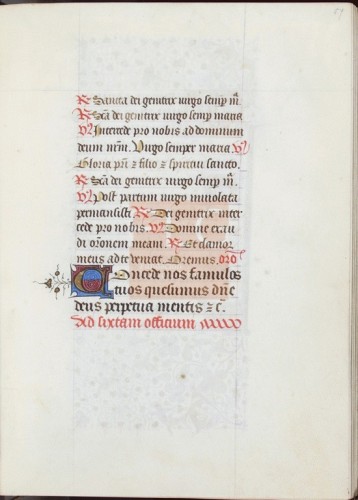 R Sancta dei genitrix uirgo semp m.
R Sca dei genitrix uirgo semp maria
V Intercede pro nobis ad dominum
deum nrm. Uirgo semper maria V
Gloria pri z filio z spiritui sancto.
R Sca dei genitrix uirgo semp m.
V Post partum uirgo inuiolata
permansisti R Dei genitrix inter
cede pro nobis V Domine exau
di oronem meam. R Et clamor
meus ad te veniat Oremus. oro
Concede nos famulos
tuos quesumus dne
deus perpetua mentis z c.
Ad sixtam officium